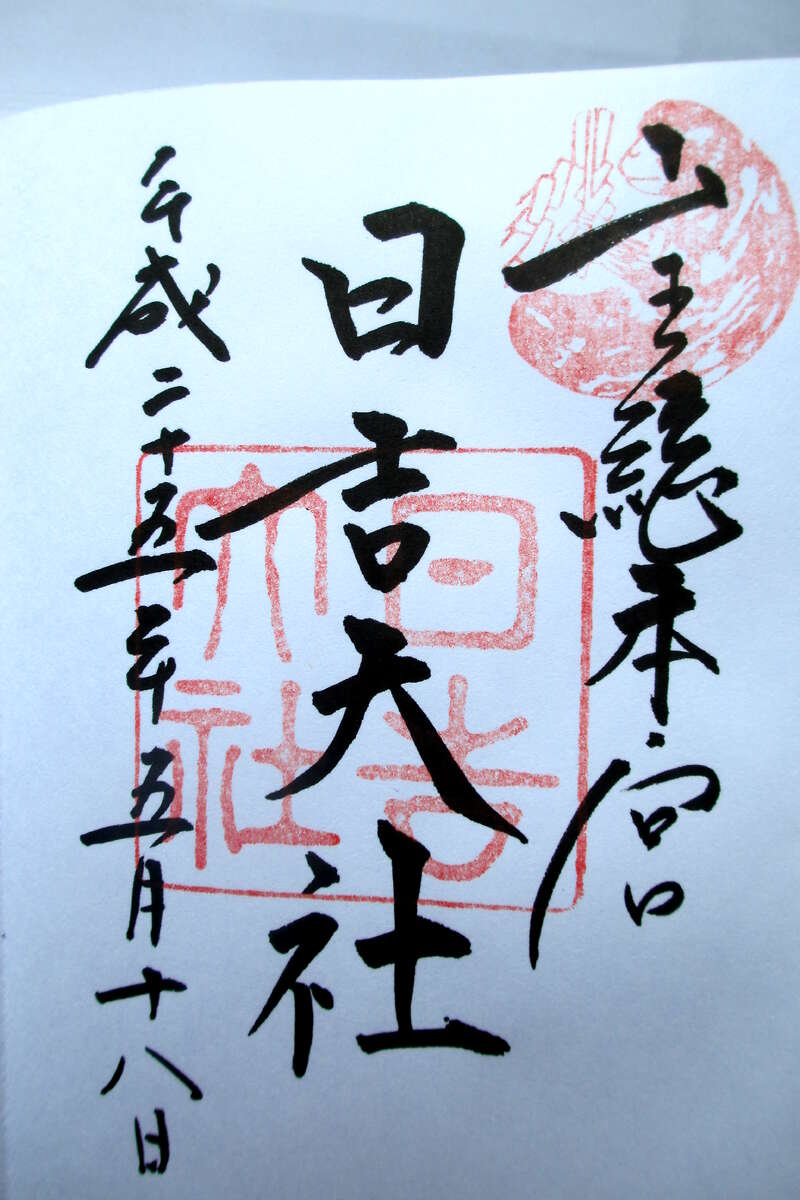 山王總本宮
日吉大社
平成二十五年五月十八日
日吉
大社